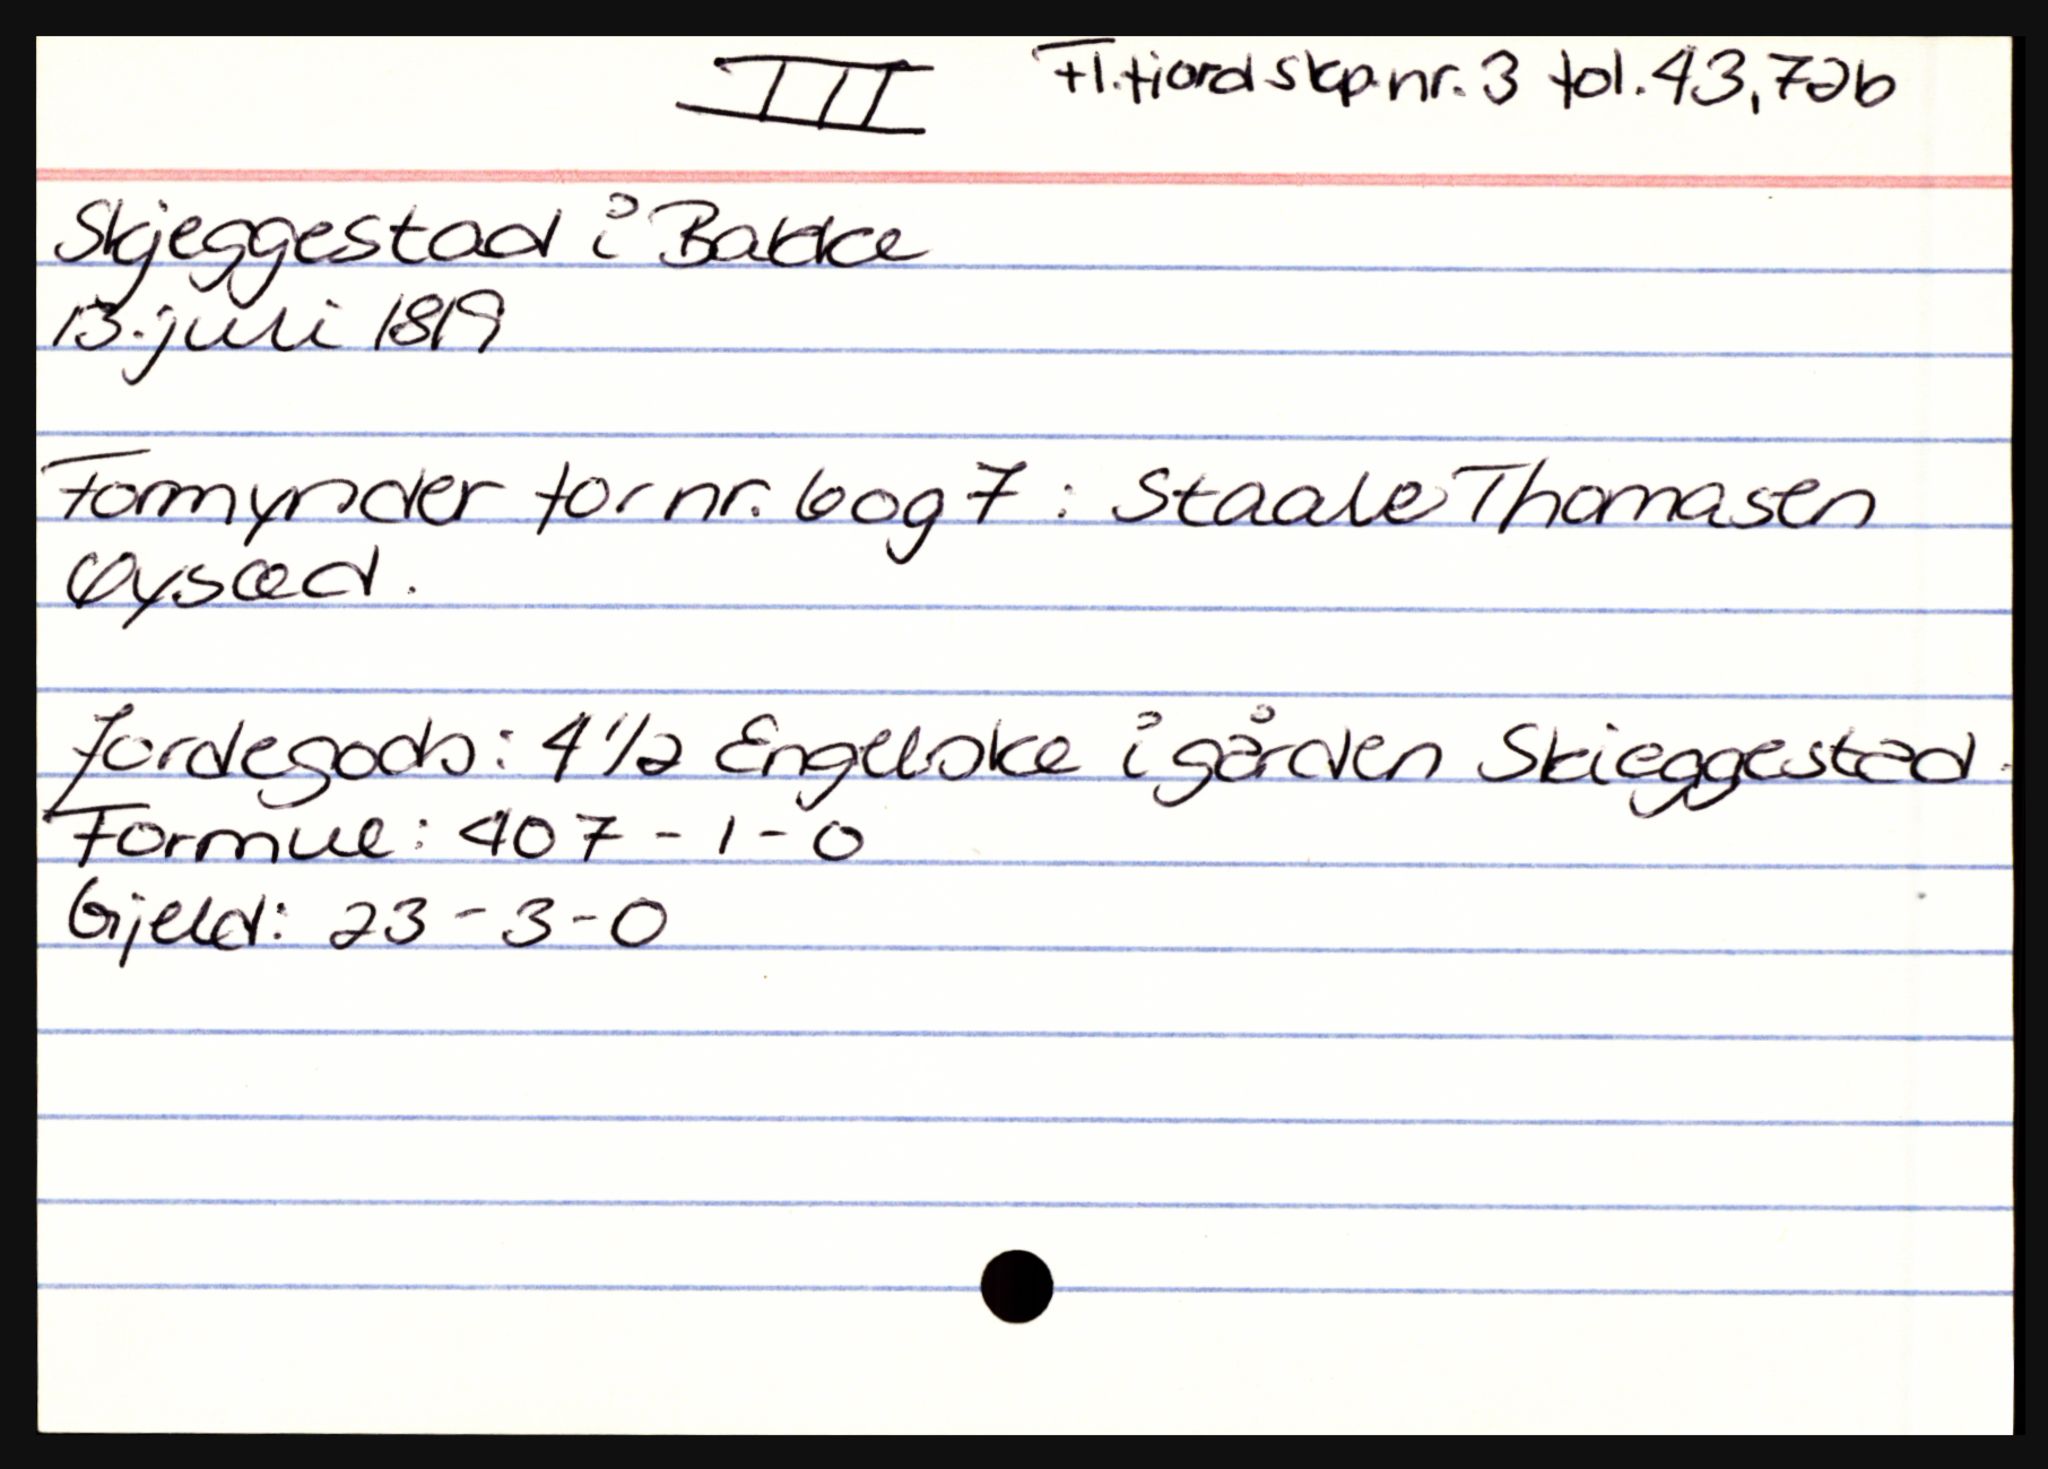 III Fl.fjord skp.nr. 3 fol. 43,72b
Skjeggestad i Bakke
13. juli 1819
Formynder for nr. 6 og 7 : Staale Thomasen
Øysæd.
Jordegods: 4 1/2 Engelske i gården Skieggestad.
Formue: 407 - 1 - 0
Gjeld: 23 - 3 - 0